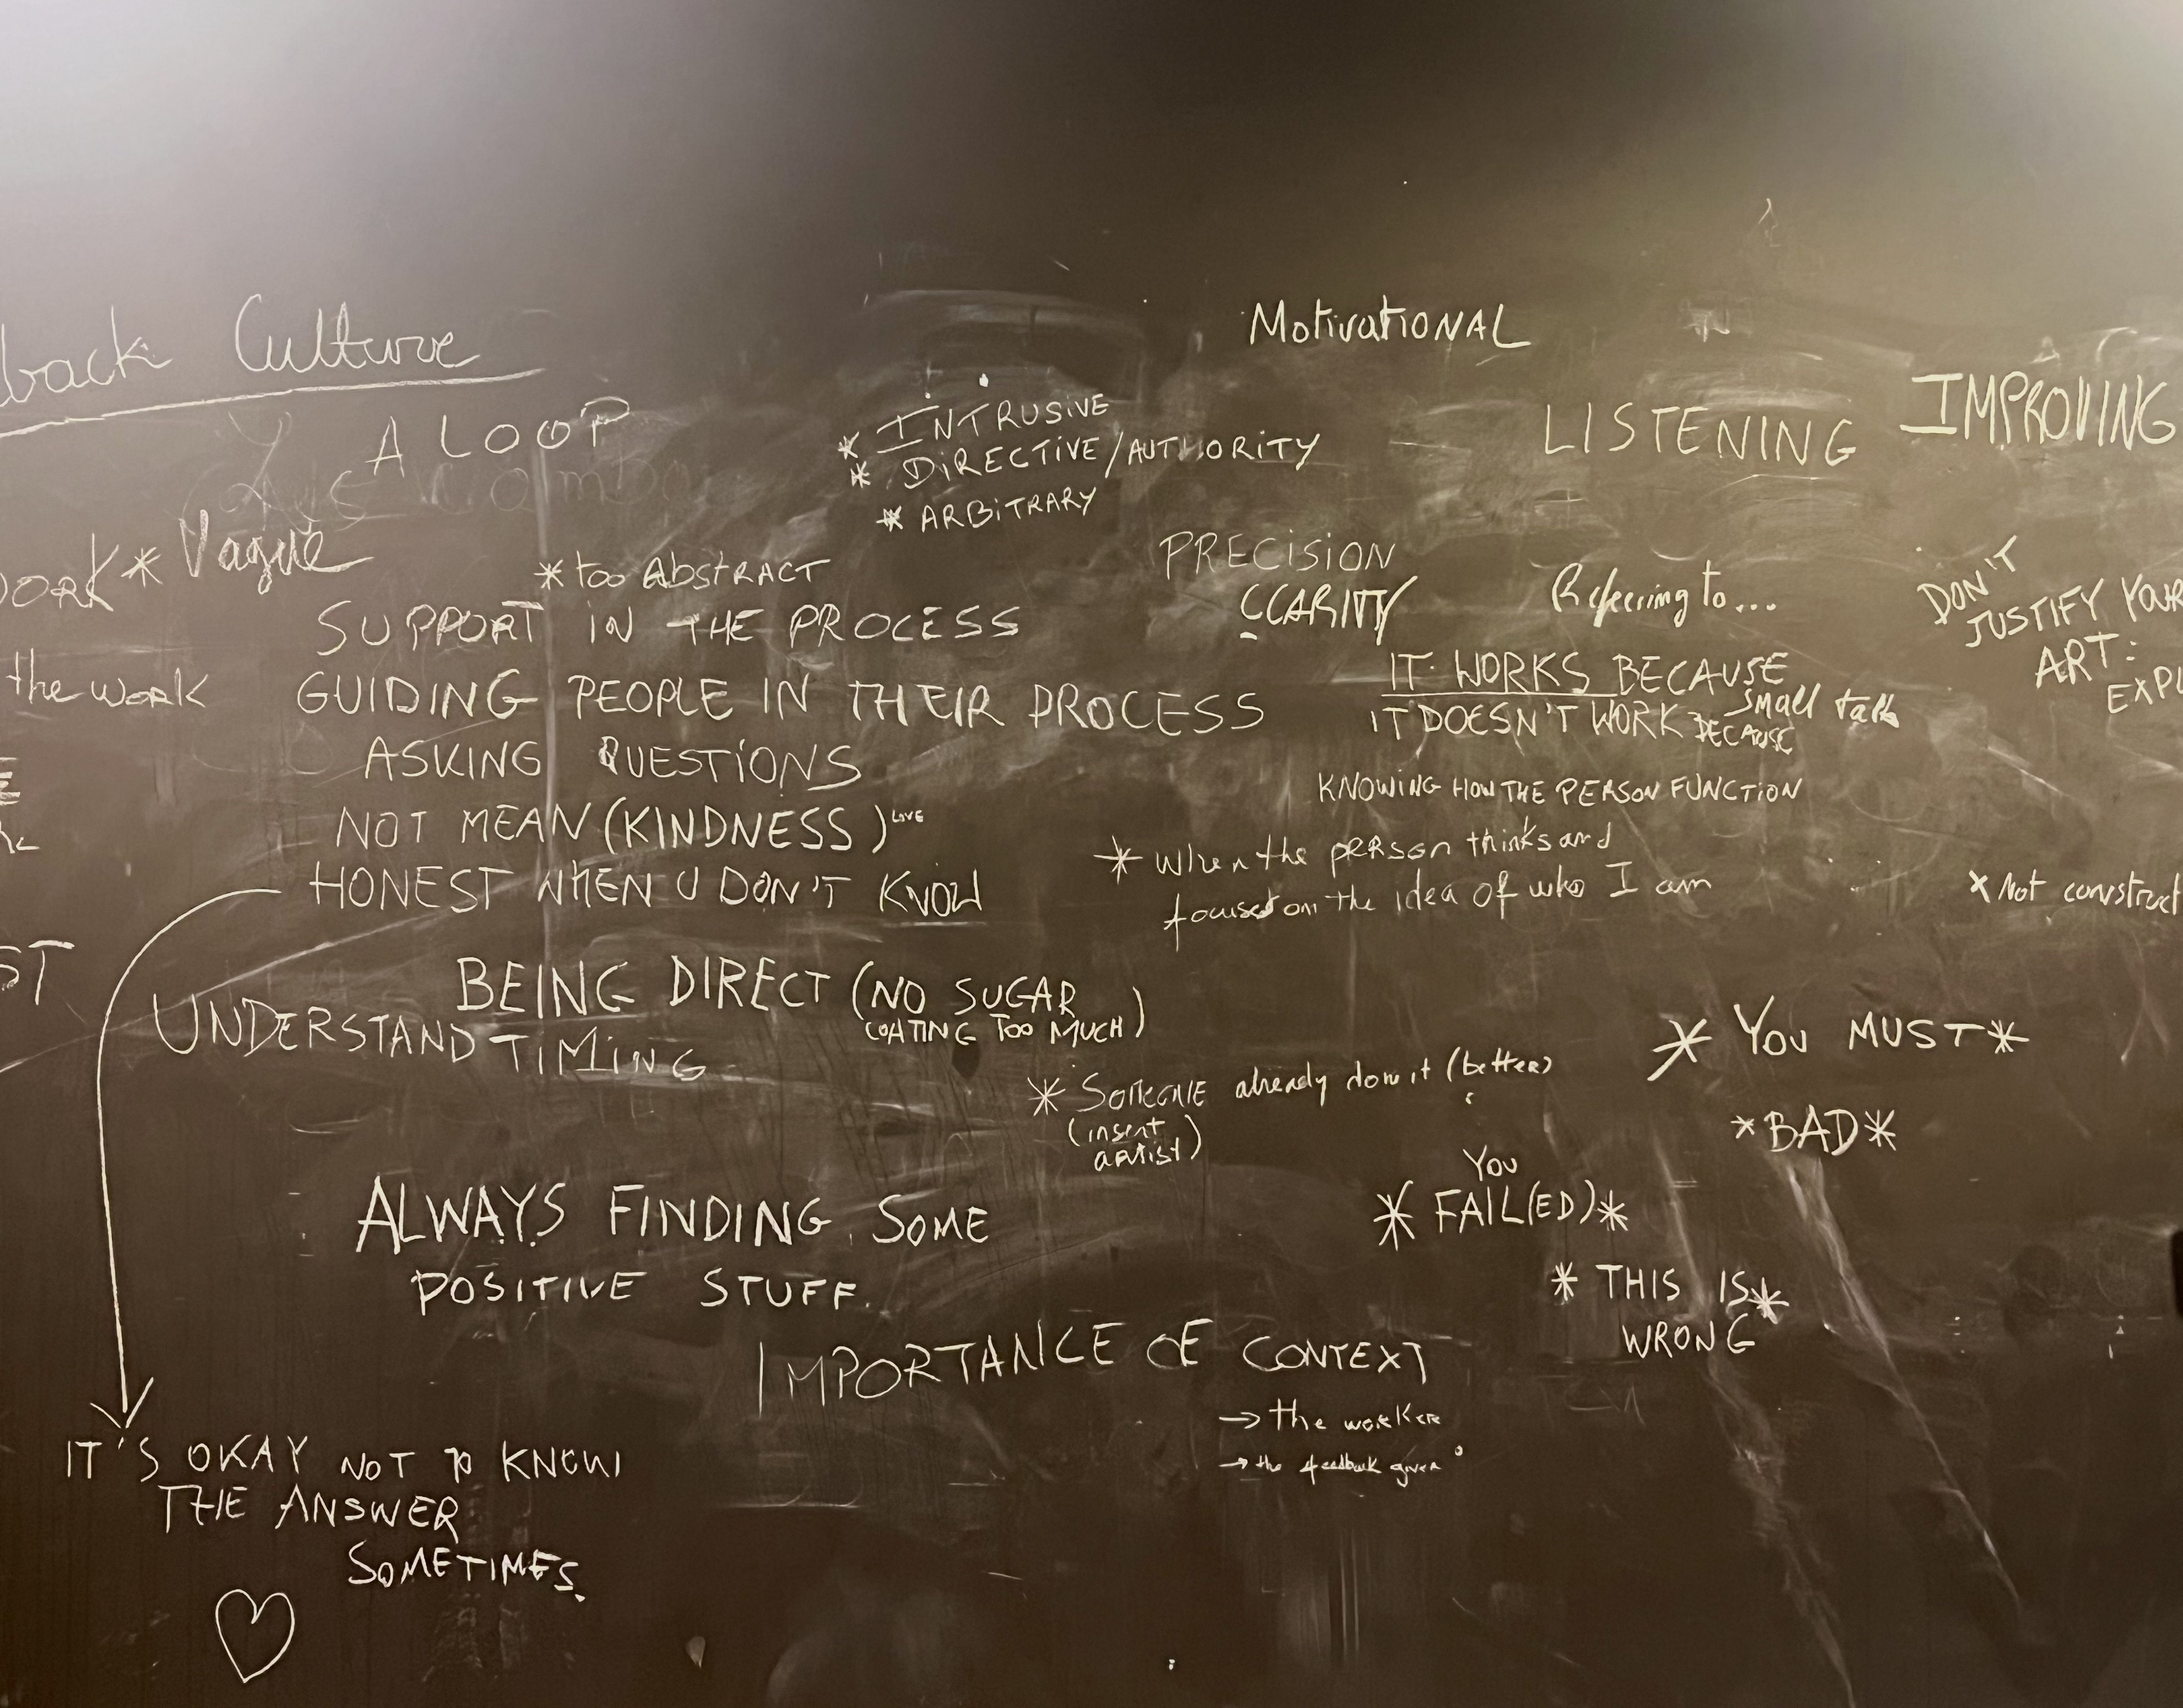 back Culture
A LOOP
* INTRUSIVE
* DIRECTIVE/AUTHORITY
* ARBITRARY
MotivatiONAL
LISTENING
IMPROVING
ORK * Vague
* too AbSTRACT
SUPPORT iN THE PROCESS
the work
GUIDING PEOPLE IN THEIR PROCESS
ASKING QUESTiONS
NOT MEAN (KINDNESS) LOVE
HONEST WHEN U DON'T KNOW
PRECiSiON
CLARITY
Referring to...
IT WORKS BECAUSE
small talk
IT DOESN'T WORK BECAUSE
KNOWiNG HOW THE PERSON FUNCTION
* When the person thinks and
focused on the idea of who I am
DON'T
JUSTIFY YOUR
ART:
EXPL
* Not construct
ST
BEING DIRECT (NO SUGAR
COATING TOO MUCH)
UNDERSTAND TIMING
* SOMEONE already done it (better)
(insert
artist)
* YOU MUST *
* BAD *
YOU
* FAIL(ED) *
* THIS IS *
WRONG
ALWAYS FINDING SOME
POSITIVE STUFF.
IMPORTANCE OF CONTEXT
→ the worker
→ the feedback given
IT'S OKAY NOT TO KNOW
THE ANSWER
SOMETIMES.